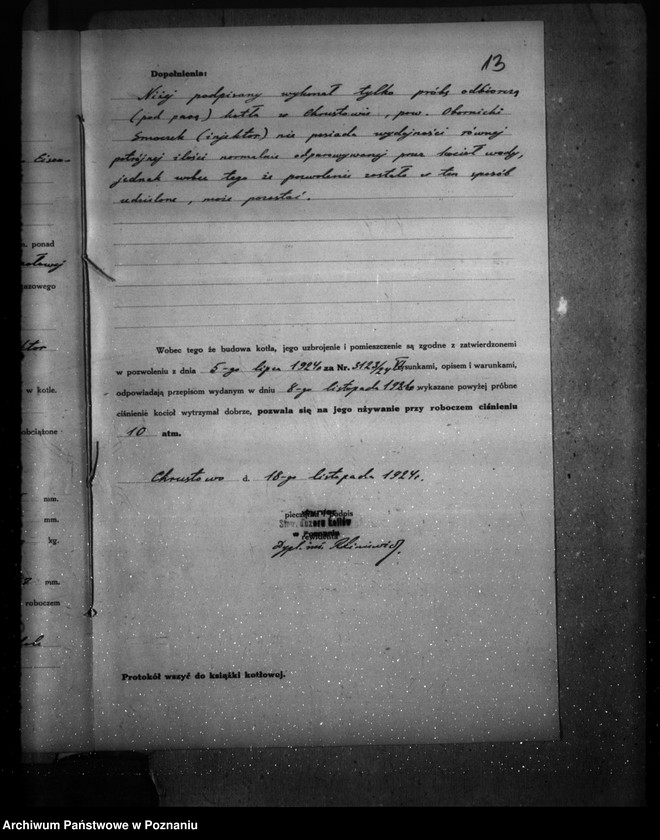 13
Dopełnienia:
Niżej podpisany wykonał tylko próbę odbiorczą
(pod parą) kotła w Chrustowie, pow. Obornicki
Smoczek (injektor) nie posiada wydajności równej
potrójnej ilości normalnie odparowywanej przez kocioł wody,
jednak wobec tego że pozwolenie zostało w ten sposób
udzielone, może pozostać.
s. ponad
azowego
w kotle.
obciążone
mm.
mm.
kg.
mm.
roboczem
Wobec tego że budowa kotła, jego uzbrojenie i pomieszczenie są zgodne z zatwierdzonemi
w pozwoleniu z dnia 5-go lipca 1924 za Nr. 3123/24 rysunkami, opisem i warunkami,
odpowiadają przepisom wydanym w dniu 8-go listopada wykazane powyżej próbne
ciśnienie kocioł wytrzymał dobrze, pozwala się na jego używanie przy roboczem ciśnieniu
10 atm.
Chrustowo d. 18-go listopada 1924r.
pieczątka i podpis
Stow. Dozoru Kotłów
w Poznaniu
Dypl. inż.
Protokół wszyć do książki kotłowej.
Archiwum Państwowe w Poznaniu